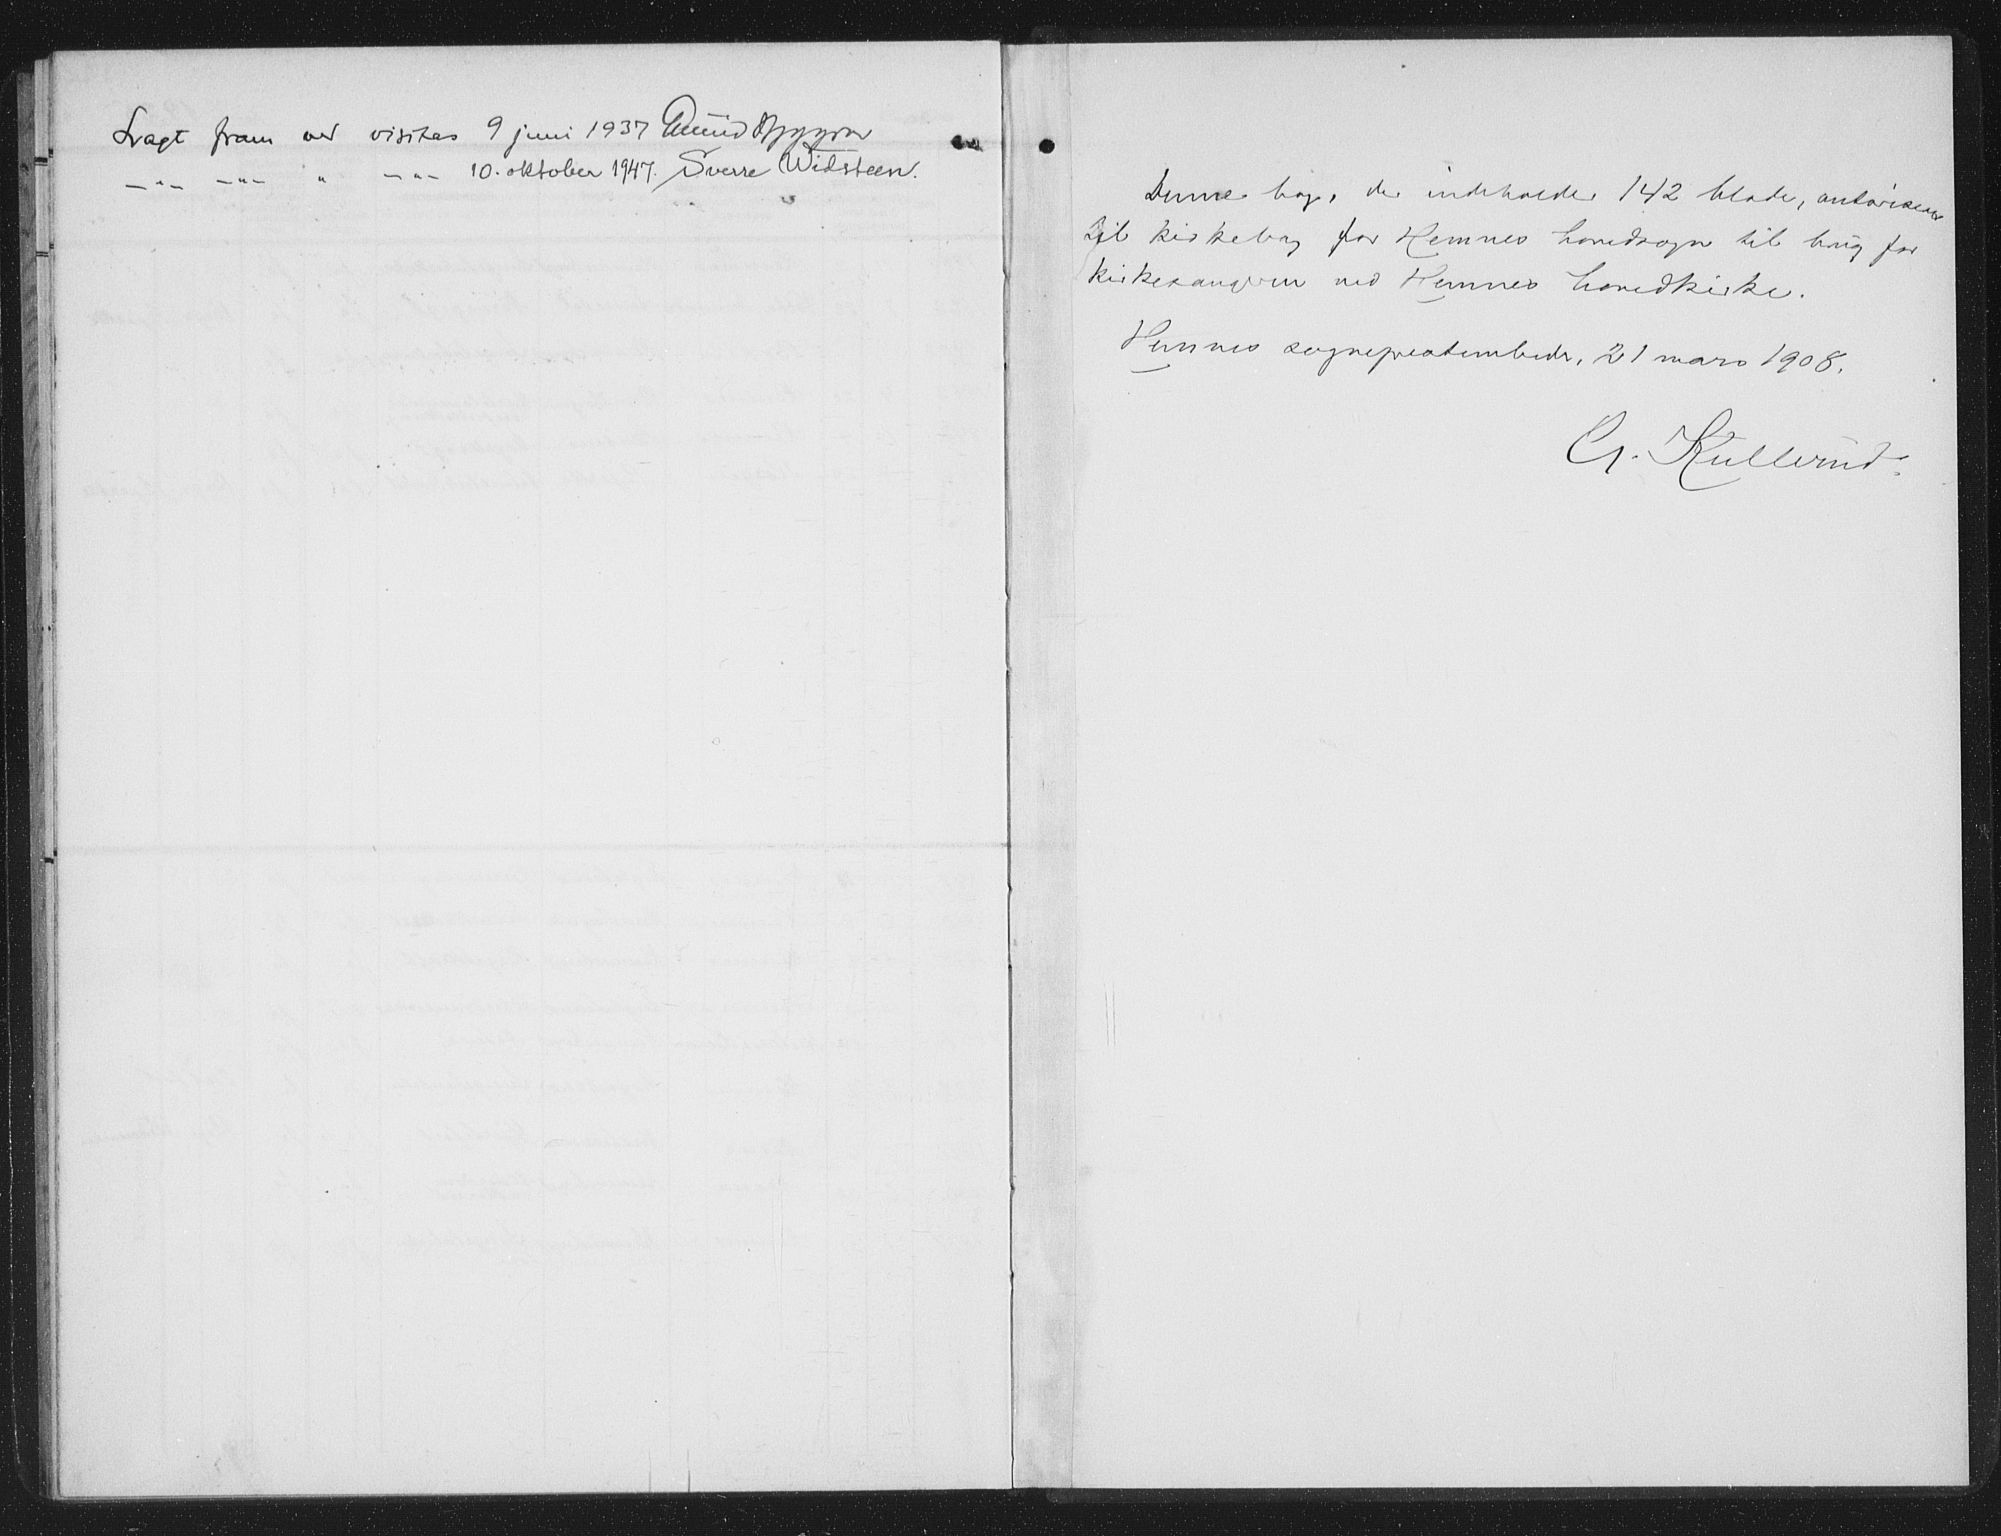 Lagt fram ved visitas 9 juni 1937
— " — — " — " — " — 10. oktober 1947. Sverre Widsteen.
Denne bog, der indeholder 142 blade, autoriseres
til kirkebog for Hemnes hovedsogn til brug for
kirkesangeren ved Hemnes hovedkirke.
Hemnes sogneprestembede, 21 mars 1908.
Kullerud.